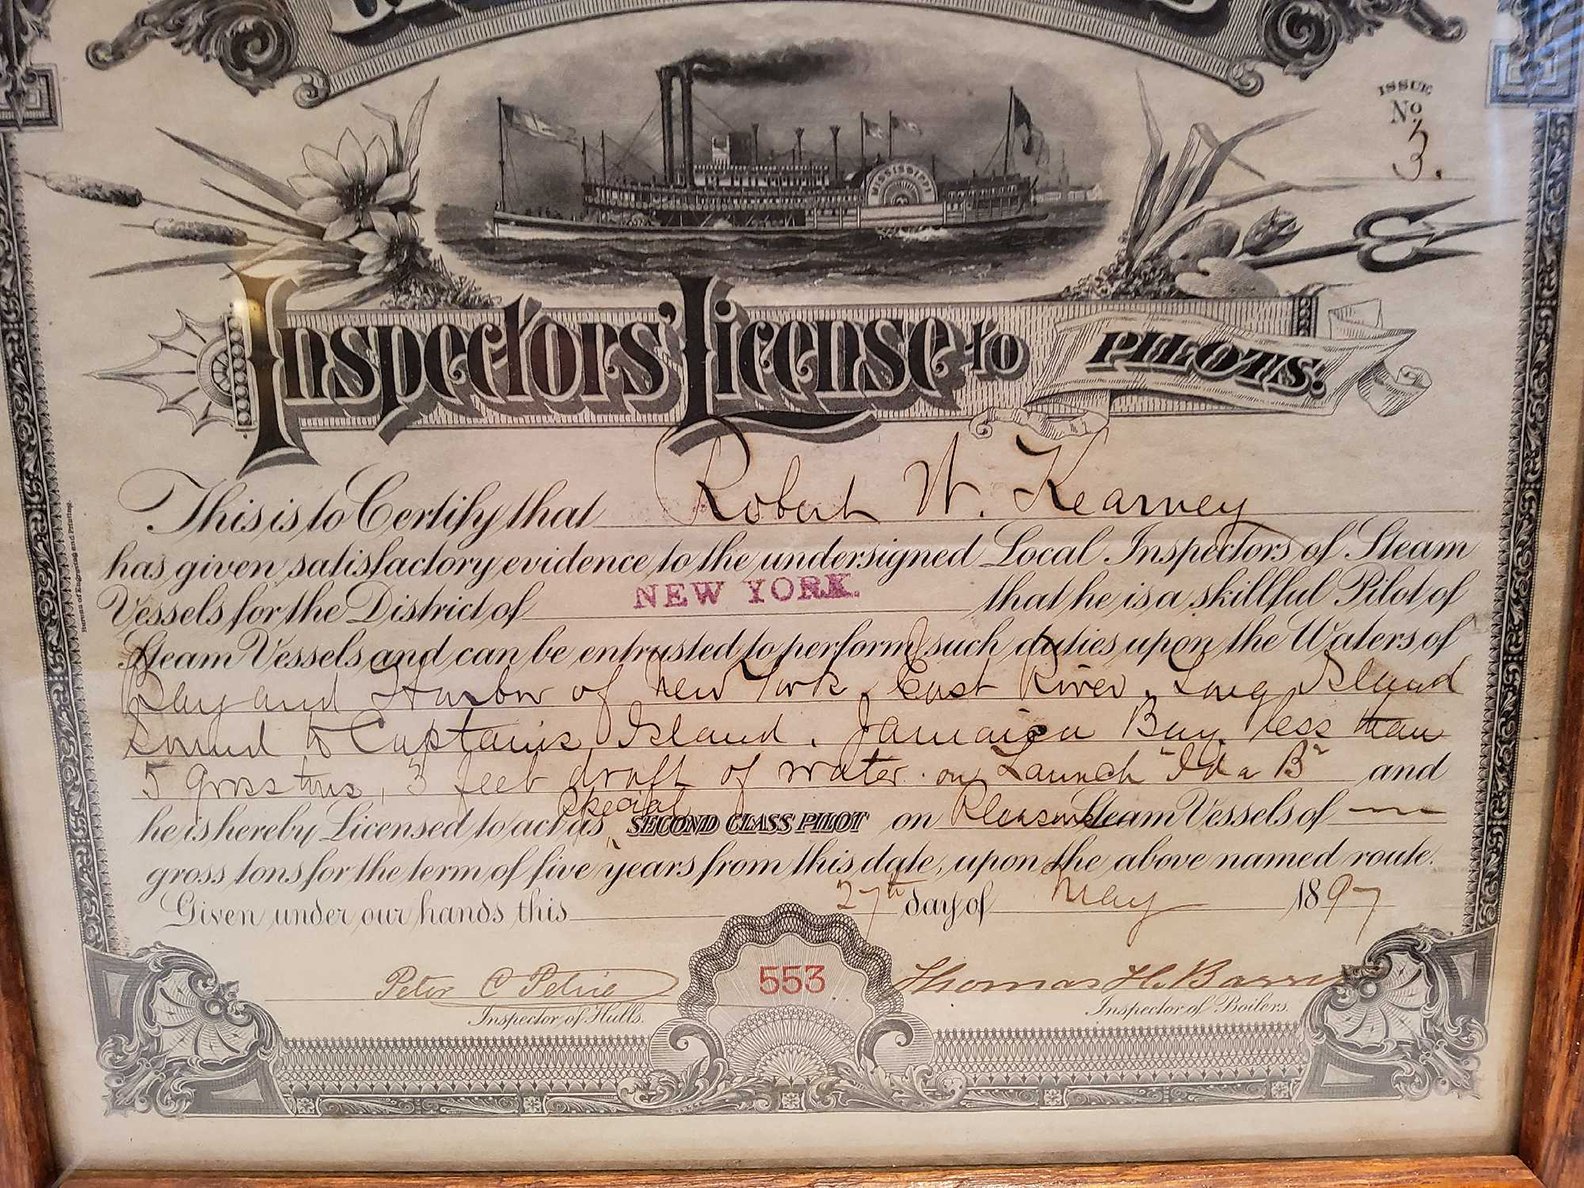 ISSUE
No. 3.
MISSISSIPPI
Inspectors' License to PILOTS.
This is to Certify that Robert W. Kearney
has given satisfactory evidence to the undersigned Local Inspectors of Steam
Vessels for the District of NEW YORK. that he is a skillful Pilot of
Steam Vessels and can be entrusted to perform such duties upon the Waters of
Bay and Harbor of New York, East River, Long Island
Sound to Captains Island, Jamaica Bay, less than
5 gross tons, 3 feet draft of water. on Launch "Ida B" and
he is hereby Licensed to act as Special SECOND CLASS PILOT on Pleasure Steam Vessels of
gross tons for the term of five years from this date, upon the above named route.
Given under our hands this 27th day of May 1897
Peter C Petrie 553 Thomas H. Barrett
Inspector of Hulls. Inspector of Boilers.
Bureau of Engraving and Printing.